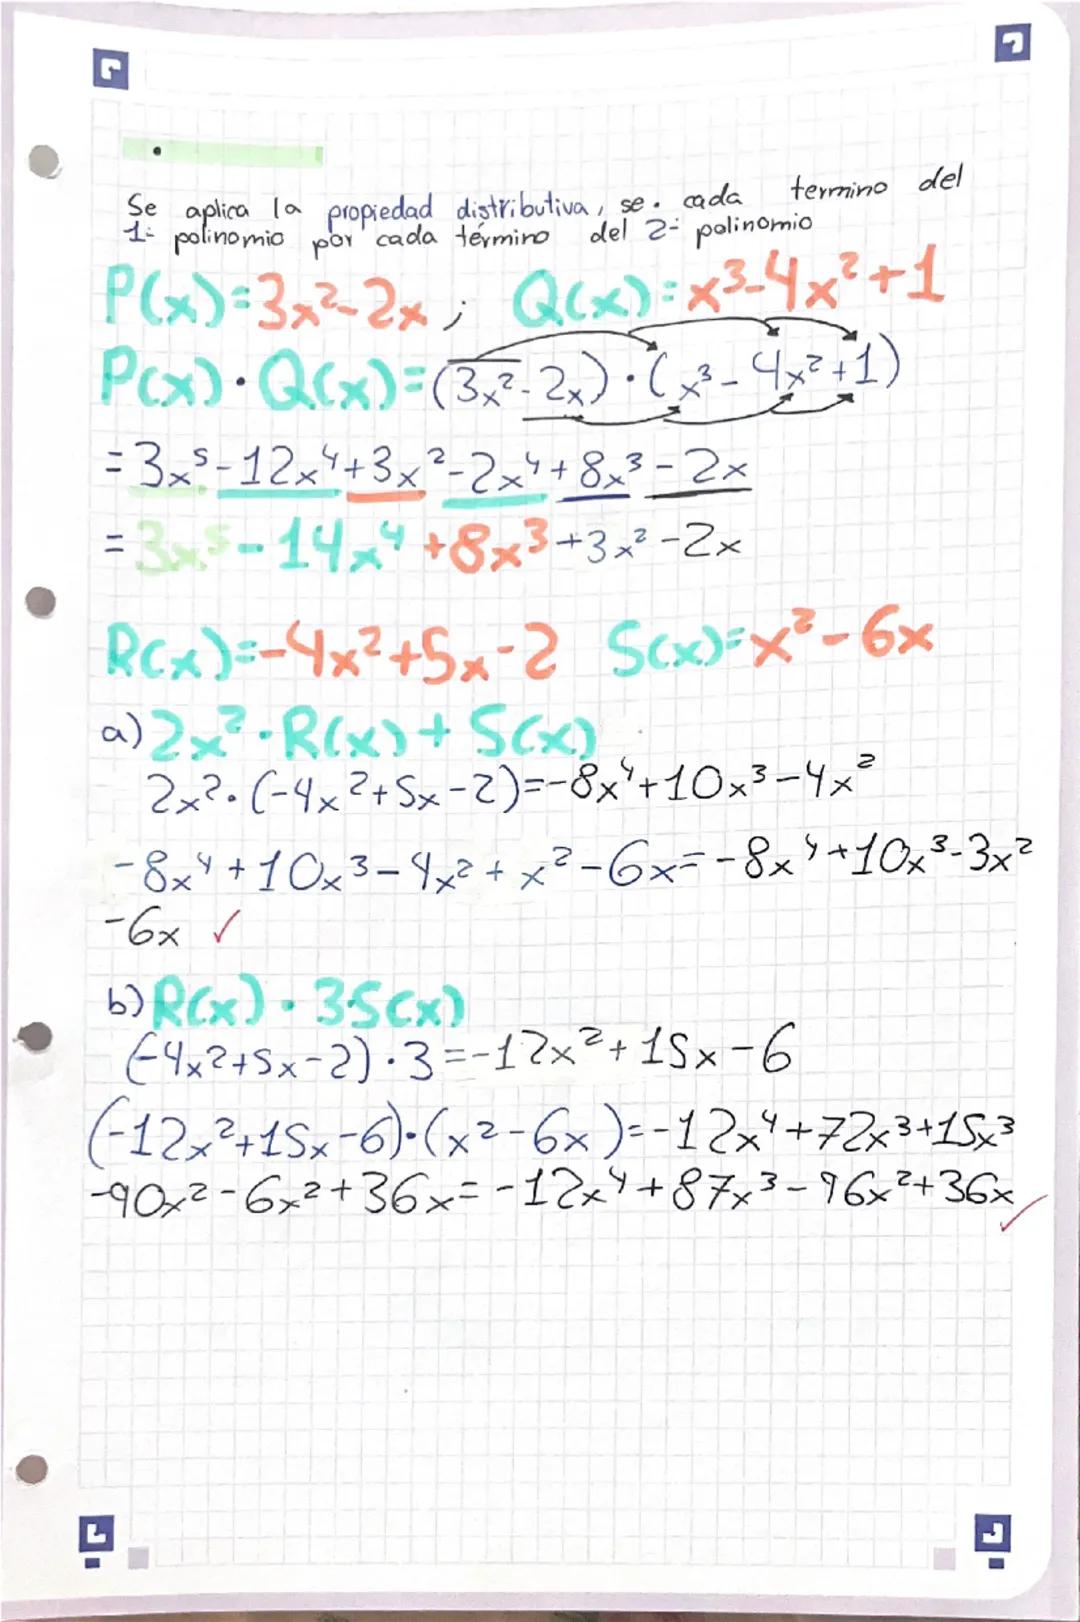 •
Se aplica la propiedad distributiva, se · cada termino del
1º polinomio por cada término del 2º polinomio
P(x)=3x²-2x ; Q(x)=x³-4x²+1
P(x)·Q(x)=(3x²-2x)·(x³-4x²+1)
=3x⁵-12x⁴+3x²-2x⁴+8x³-2x
=3x⁵-14x⁴+8x³+3x²-2x
R(x)=-4x²+5x-2 S(x)=x²-6x
a) 2x²·R(x)+S(x)
2x²·(-4x²+5x-2)=-8x⁴+10x³-4x²
-8x⁴+10x³-4x²+x²-6x=-8x⁴+10x³-3x²
-6x ✓
b) R(x)·3·S(x)
(-4x²+5x-2)·3=-12x²+15x-6
(-12x²+15x-6)·(x²-6x)=-12x⁴+72x³+15x³
-90x²-6x²+36x=-12x⁴+87x³-96x²+36x ✓